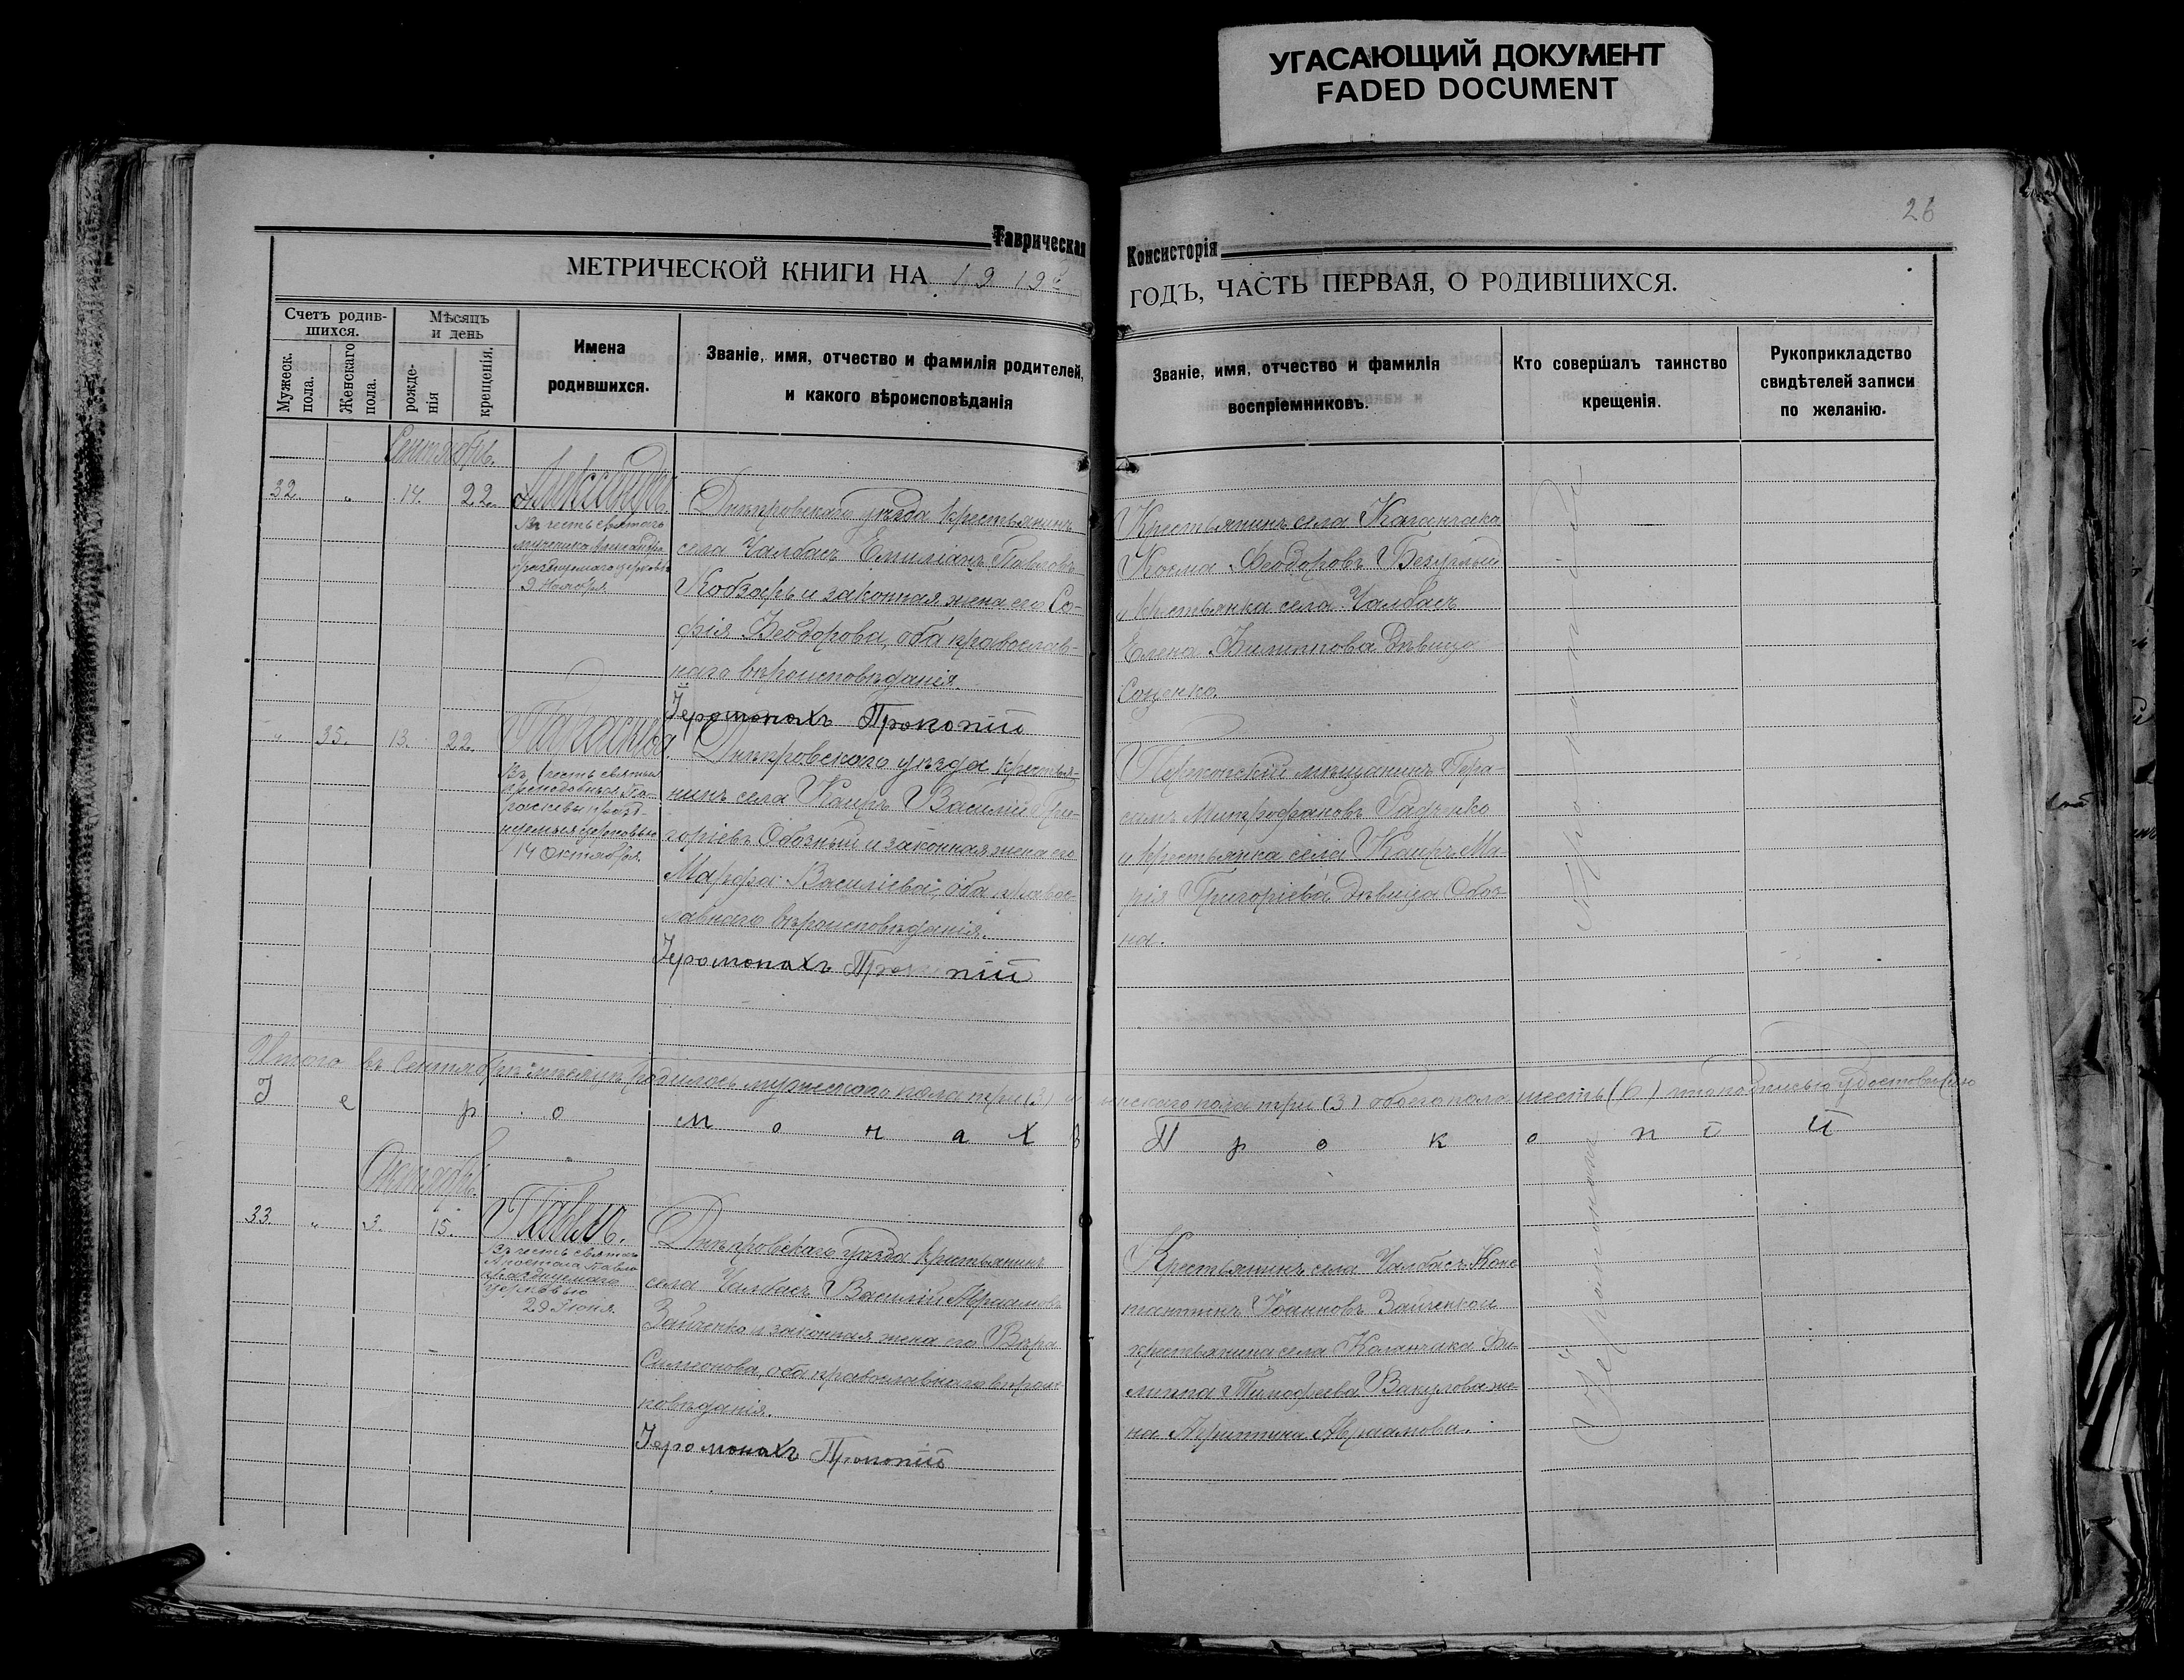 УГАСАЮЩИЙ ДОКУМЕНТ
FADED DOCUMENT
26
Таврическая
Консисторія
МЕТРИЧЕСКОЙ КНИГИ НА 1919
ГОДЪ, ЧАСТЬ ПЕРВАЯ, О РОДИВШИХСЯ.
Счетъ родив-
шихся.
Мужеск.
пола.
Женскаго
пола.
Мѣсяцъ
и день
рожде-
нія
крещенія.
Имена
родившихся.
Званіе, имя, отчество и фамилія родителей,
и какого вѣроисповѣданія
Званіе, имя, отчество и фамилія
воспріемниковъ.
Кто совершалъ таинство
крещенія.
Рукоприкладство
свидѣтелей записи
по желанію.
Сентябрь.
32 " 14. 22. Александръ.
Въ честь святаго
мученика Александра
празднуемаго церковью
9 Ноября
Днѣпровскаго уѣзда крестьянинъ
села Чалбасъ Емиліанъ Павловъ
Кобзарь и законная жена его Со-
фія Ѳеодорова, оба православ-
наго вѣроисповѣданія.
Іеромонахъ Прокопій
Крестьянинъ села Каланчака
Косма Ѳеодоровъ
и крестьянка села Чалбасъ
Елена Филиппова дѣвица
Соценко.
" 35. 13. 22. Параскева.
Въ честь святыя
преподобныя Па-
раскевы празд-
нуемыя церковью
14 Октября
Днѣпровскаго уѣзда крестья-
нинъ села Каиръ Василій Гри-
горіевъ Обозный и законная жена его
Марфа Василіева, оба правос-
лавнаго вѣроисповѣданія.
Іеромонахъ Прокопій
мѣщанинъ Гера-
симъ Митрофановъ Радченко
и крестьянка села Каиръ Ма-
рія Григоріева дѣвица Обоз-
на.
Итого въ Сентябрѣ мѣсяцѣ родилось мужескаго пола три (3) и женскаго пола три (3) обоего пола шесть (6)
Іеромонахъ Прокопій
Октябрь.
33. " 3. 15. Павелъ.
Въ честь святаго
Апостола Павла
празднуемаго
церковью
29 Іюня.
Днѣпровскаго уѣзда крестьянинъ
села Чалбасъ Василій Авраамовъ
Зайченко и законная жена его Вѣра
Симеонова, оба православнаго вѣроис-
повѣданія.
Іеромонахъ Прокопій
Крестьянинъ села Чалбасъ Конс-
тантинъ Іоанновъ Зайченко и
крестьянина села Каланчака Фи-
липпа Тимофеева Вакулова же-
на Агриппина Авраамова.
Іеромонахъ
Прокопій